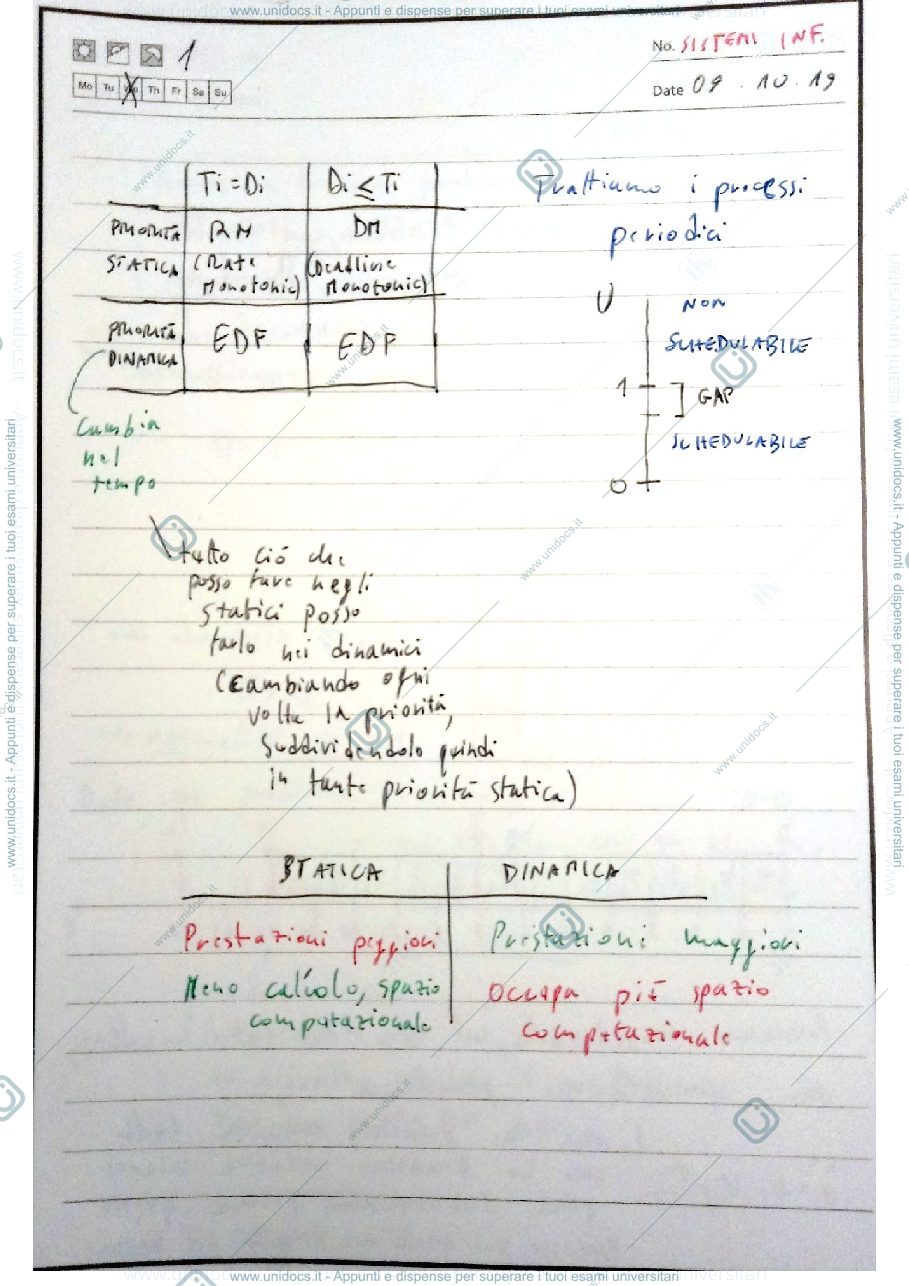 www.unidocs.it - Appunti e dispense per superare i tuoi esami universitari
1
No. SISTEMI INF.
Mo Tu We Th Fr Sa Su
Date 09 . 10 . 19
Ti = Di
Di ≤ Ti
PRIORITÀ STATICA
RM (Rate Monotonic)
DM (Deadline Monotonic)
PRIORITÀ DINAMICA
EDF
EDF
Cambia
nel
tempo
Trattiamo i processi
periodici
U
NON
SCHEDULABILE
1
GAP
SCHEDULABILE
0
tutto ciò che
posso fare negli
statici posso
farlo nei dinamici
(cambiando ogni
volta la priorità,
suddividendolo quindi
in tante priorità statica)
STATICA
DINAMICA
Prestazioni peggiori
Prestazioni maggiori
Meno calcolo, spazio
computazionale
Occupa più spazio
computazionale
www.unidocs.it - Appunti e dispense per superare i tuoi esami universitari